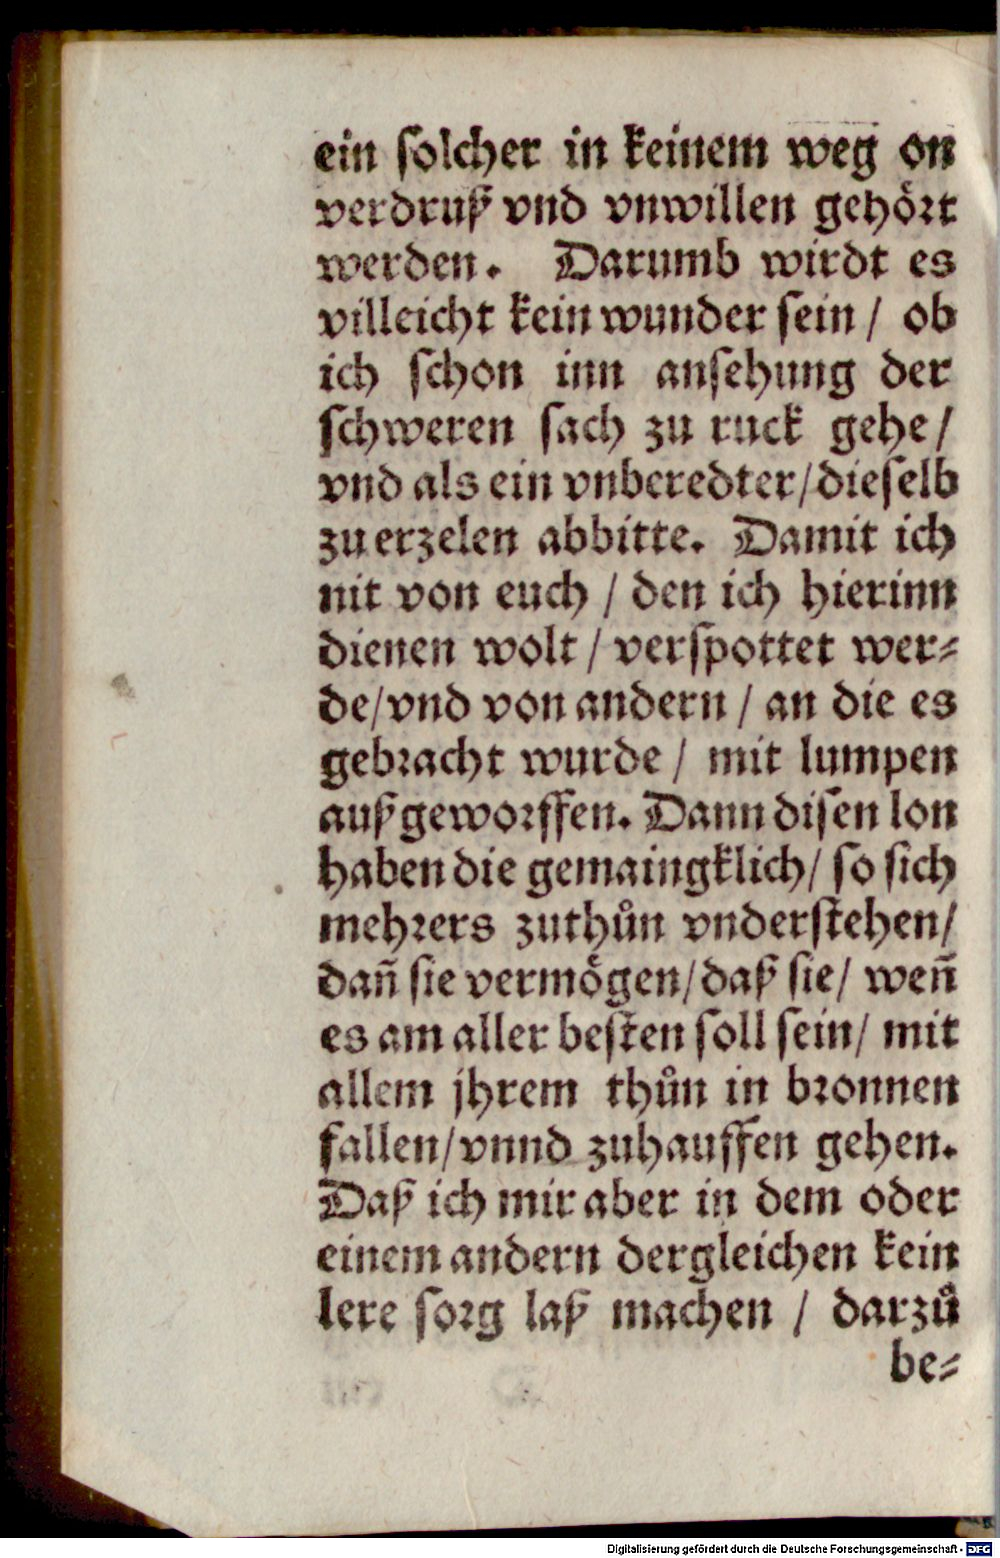 ein solcher in keinem weg on
verdruß vnd vnwillen gehört
werden. Darumb wirdt es
villeicht kein wunder sein / ob
ich schon inn ansehung der
schweren sach zu ruck gehe /
vnd als ein vnberedter / dieselb
zu erzelen abbitte. Damit ich
nit von euch / den ich hierinn
dienen wolt / verspottet wer⸗
de / vnd von andern / an die es
gebracht wurde / mit lumpen
außgeworffen. Dann disen lon
haben die gemaingklich / so sich
mehrers zuthůn vnderstehen /
dañ sie vermögen / daß sie / weñ
es am aller besten soll sein / mit
allem jhrem thůn in bronnen
fallen / vnnd zuhauffen gehen.
Daß ich mir aber in dem oder
einem andern dergleichen kein
lere sorg laß machen / darzů
be⸗
Digitalisierung gefördert durch die Deutsche Forschungsgemeinschaft - DFG